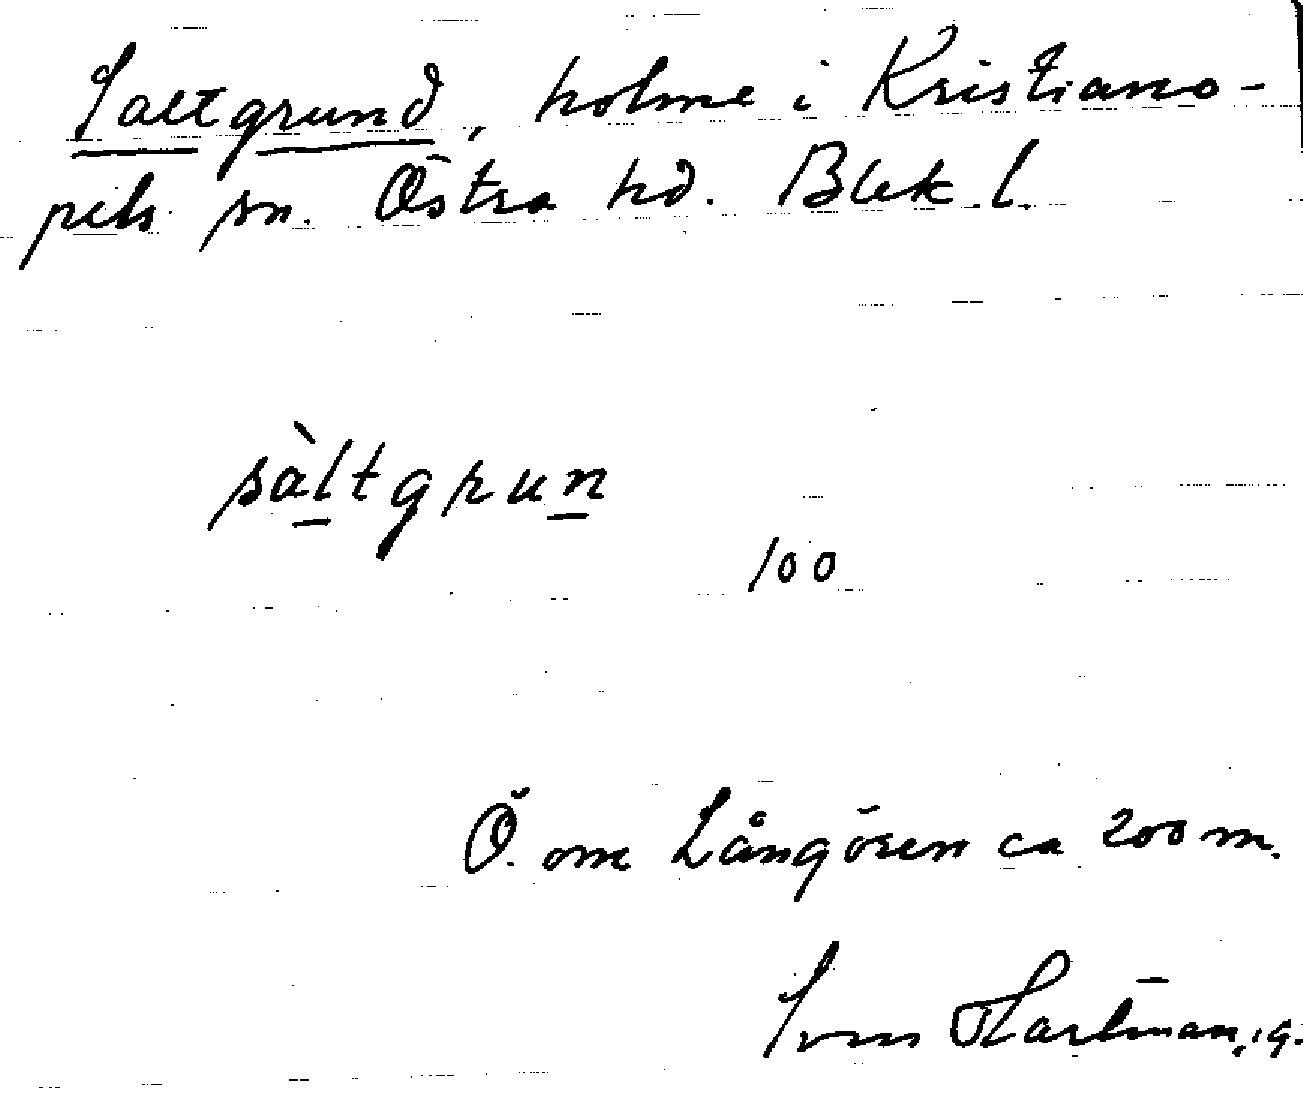 Saltgrund, holme i Kristiano-
pels sn. Östra hd. Blek. l.
sàltgrun
100
Ö. om Långören ca 200 m.
Sven Hartman, 19.